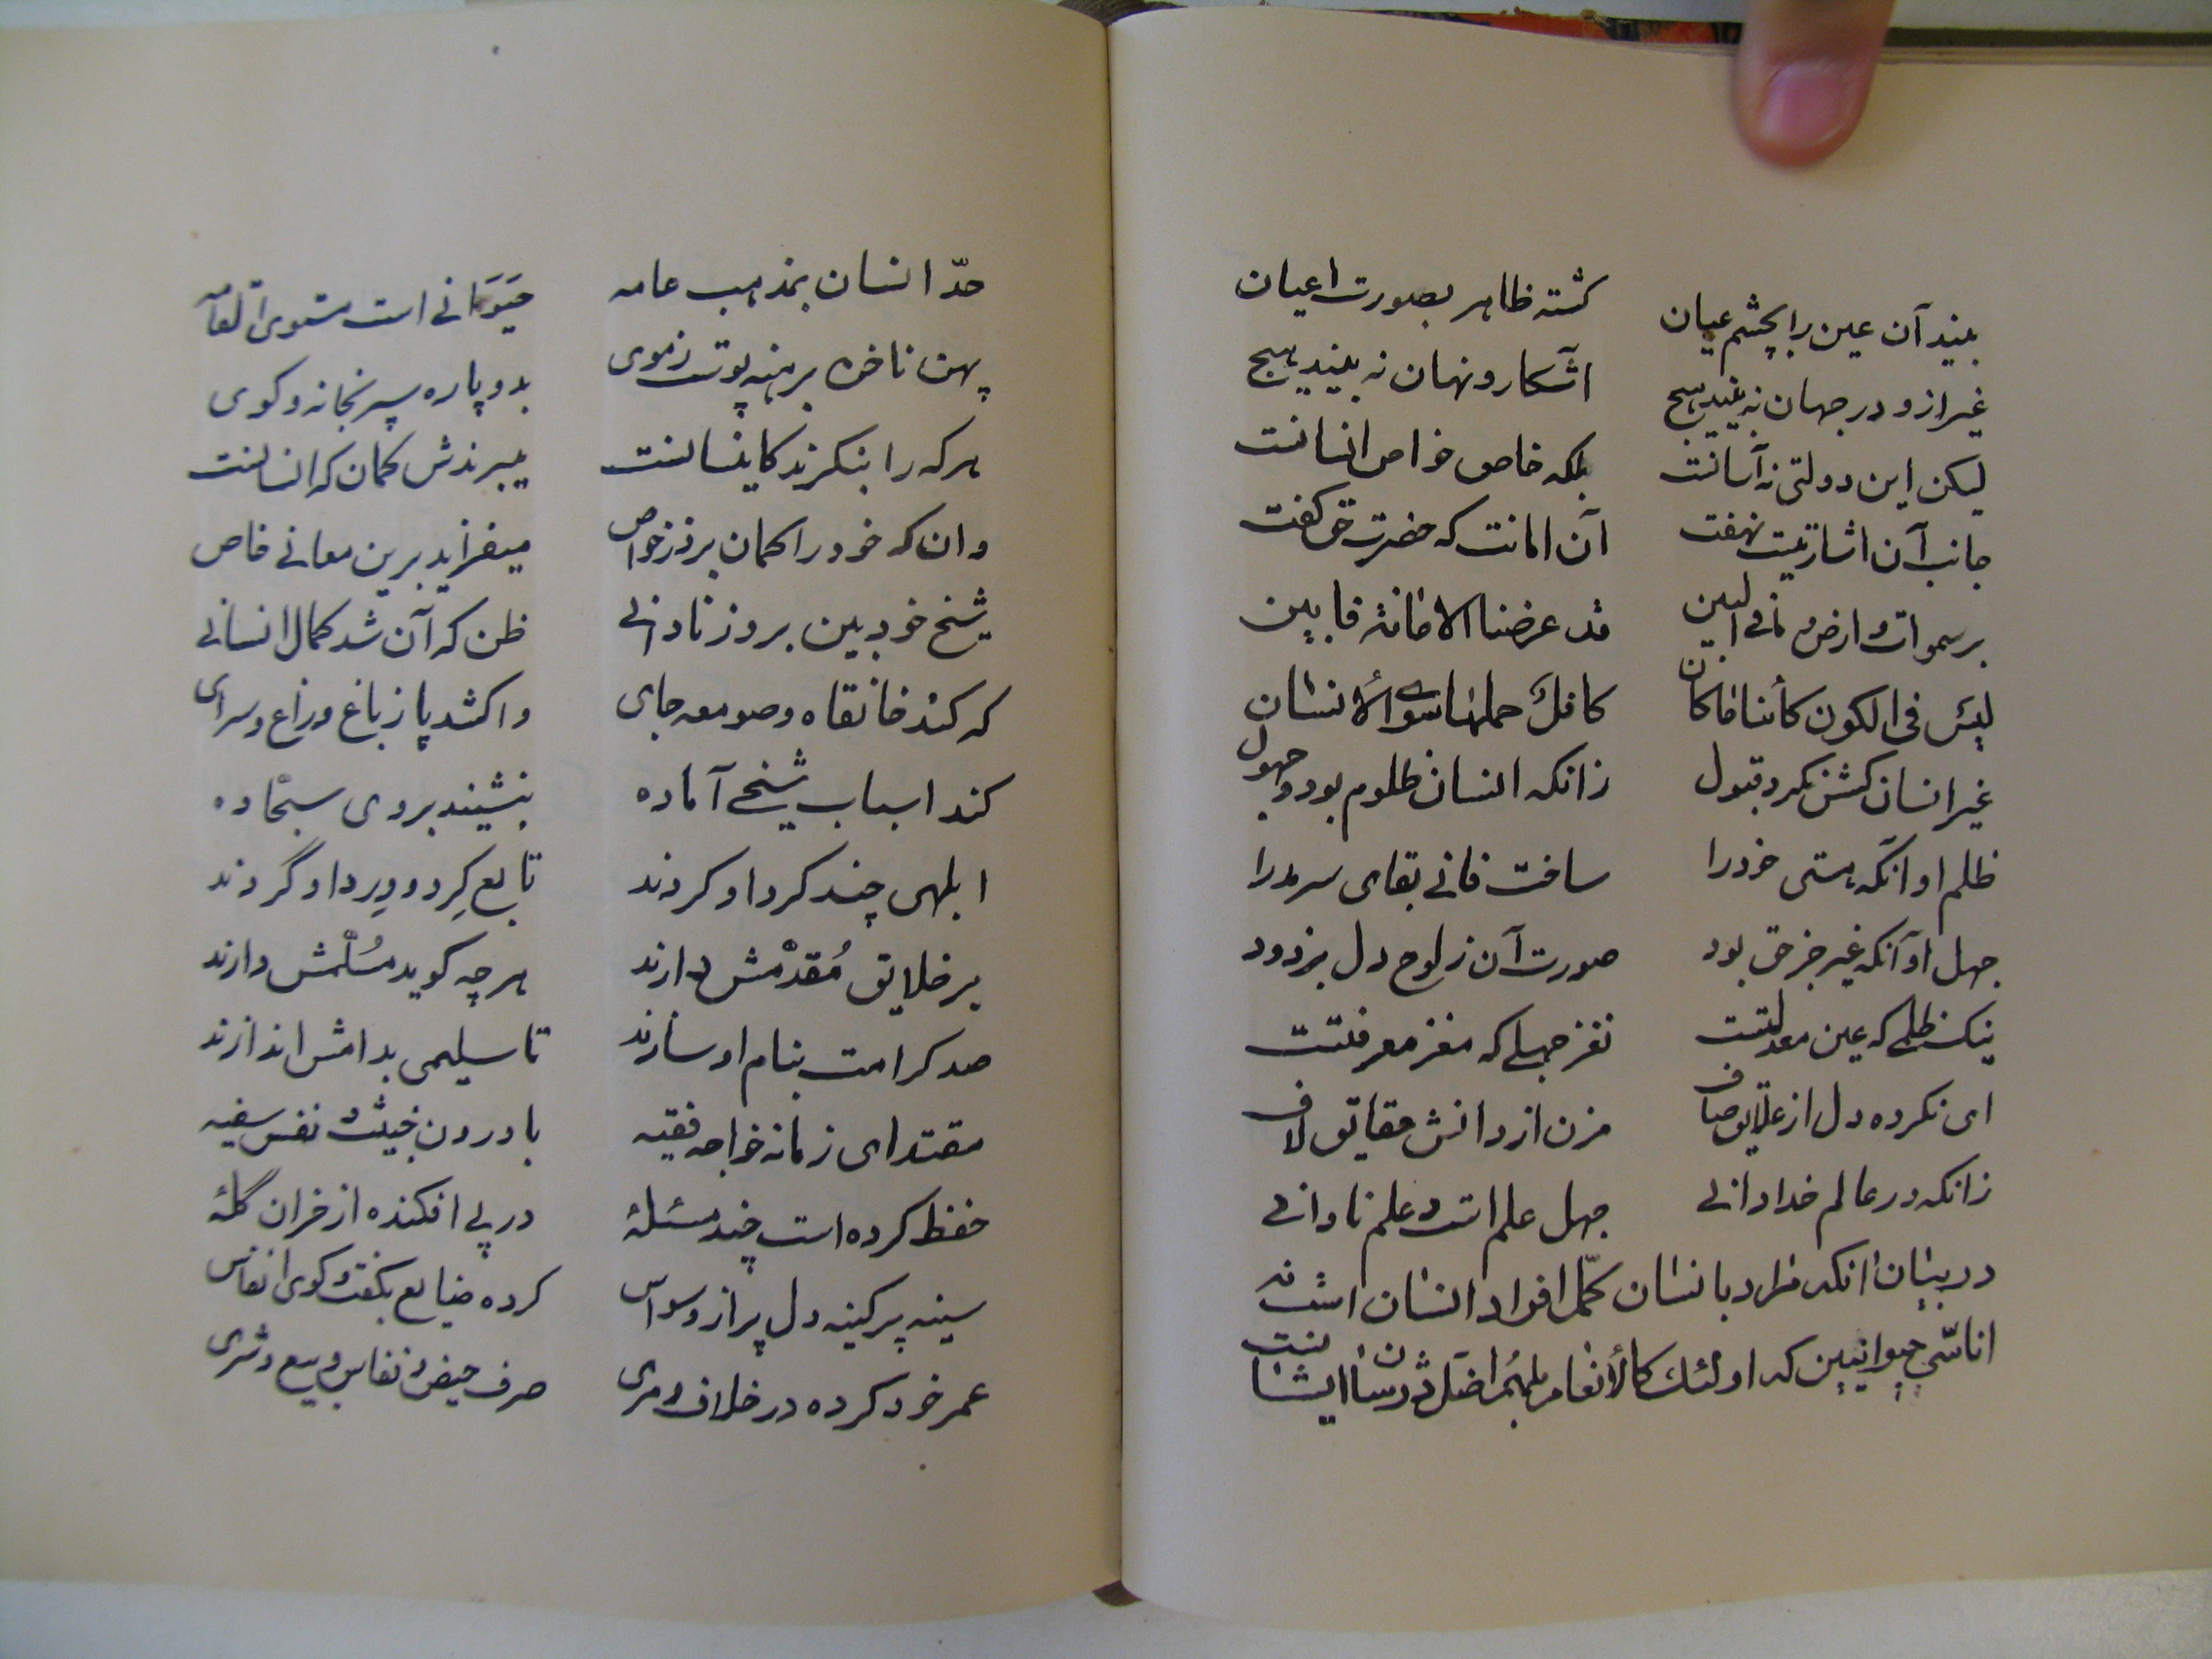 بیند آن عین را بچشم عیان گشته ظاهر بصورت اعیان
غیر ازو در جهان نه بیند هیچ آشکار و نهان نه بیند هیچ
لیکن این دولتی نه آسانست بلکه خاص خواص انسانست
جانب آن اشارتیست نهفت آن امانت که حضرت حق گفت
بر سموات و ارض و مافی البین قد عرضنا الامانة فابین
لیس فی الکون کائنا ماکان کافل حملها سوی الانسان
غیر انسان کسش نکرد قبول زانکه انسان ظلوم بود و جهول
ظلم او آنکه هستی خود را ساخت فانی بقای سرمد را
جهل او آنکه غیر جز حق بود صورت آن ز لوح دل بزدود
نیک ظلمی که عین معدلتست نغز جهلی که مغز معرفتست
ای نکرده دل از علایق صاف مزن از دانش حقایق لاف
زانکه در عالم خدا دانی جهل علم است و علم نادانی
در بیان آنکه مراد بانسان کمّل افراد انسان است نه
اناسّی حیوانیین که اولئک کالأنعام بلهُم اضَل در شان ایشانست
حدّ انسان بمذهب عامه حَیَوانی است مستوی القامه
پهن ناخن برهنه پوست ز موی بدو پا ره سپر بخانه و کوی
هر که را بنگرند کاینسانست میبرندش گمان که انسانست
وان که خود را گمان برد ز خواص میفزاید برین معانی خاص
شیخ خودبین بروز نادانی ظن که آن شد کمال انسانی
که کند خانقاه و صومعه جای واکشد پا ز باغ و راغ و سرای
کند اسباب شیخی آماده بنشیند بروی سجّاده
ابلهی چند گرد او گردند تابع گِرد و وِرد او گردند
بر خلایق مُقدّمش دارند هر چه گوید مُسلّمش دارند
صد کرامت بنام او سازند تا سلیمی بدامش اندازند
مقتدای زمانه خواجه فقیه با درون خبیث و نفس سفیه
حفظ کرده است چند مسئلهٔ در پی افکنده از خران گلهٔ
سینه پر کینه دل پر از وسواس کرده ضایع بگفت و گوی انفاس
عمر خود کرده در خلاف و مری صرف حیض و نفاس و بیع و شری